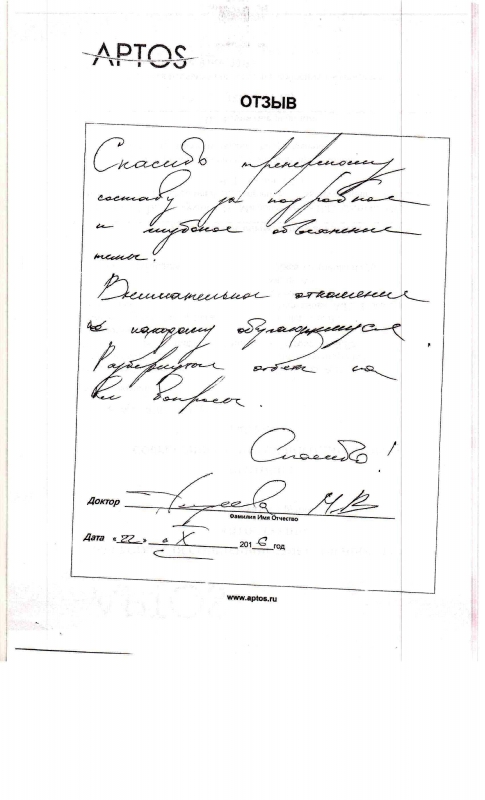 APTOS
ОТЗЫВ
Спасибо тренерскому
составу за подробное
и глубокое объяснение
темы.
Внимательное отношение
к каждому обучающемуся.
Развернутый ответ на
все вопросы.
Спасибо!
Доктор М В
Фамилия Имя Отчество
Дата «22» X 2016 год
www.aptos.ru